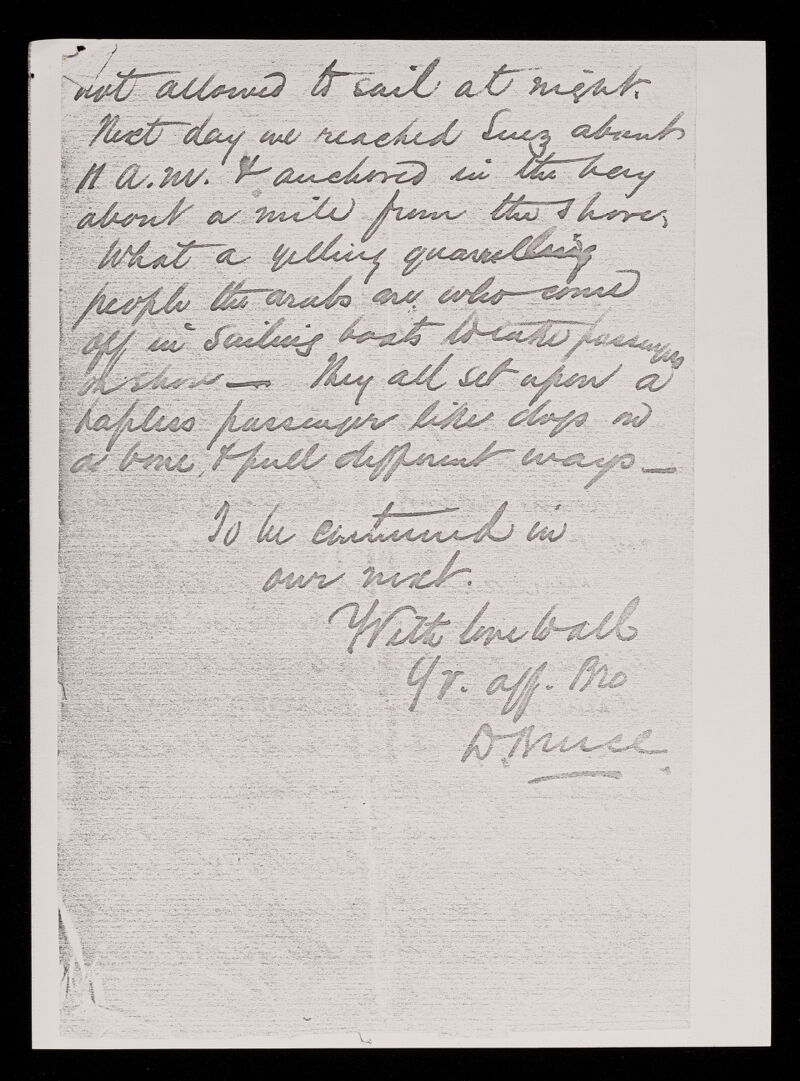 not allowed to sail at night.
Next day we reached Suez about
11 a.m. & anchored in the bay
about a mile from the shore,
What a yelling quarrelling
people the arabs are who come
off in sailing boats to take passengers
on shore — They all set upon a
hapless passenger like dogs on
a bone, & pull different ways —
To be continued in
our next.
With love to all
Yr. aff. Bro
D. Bruce.